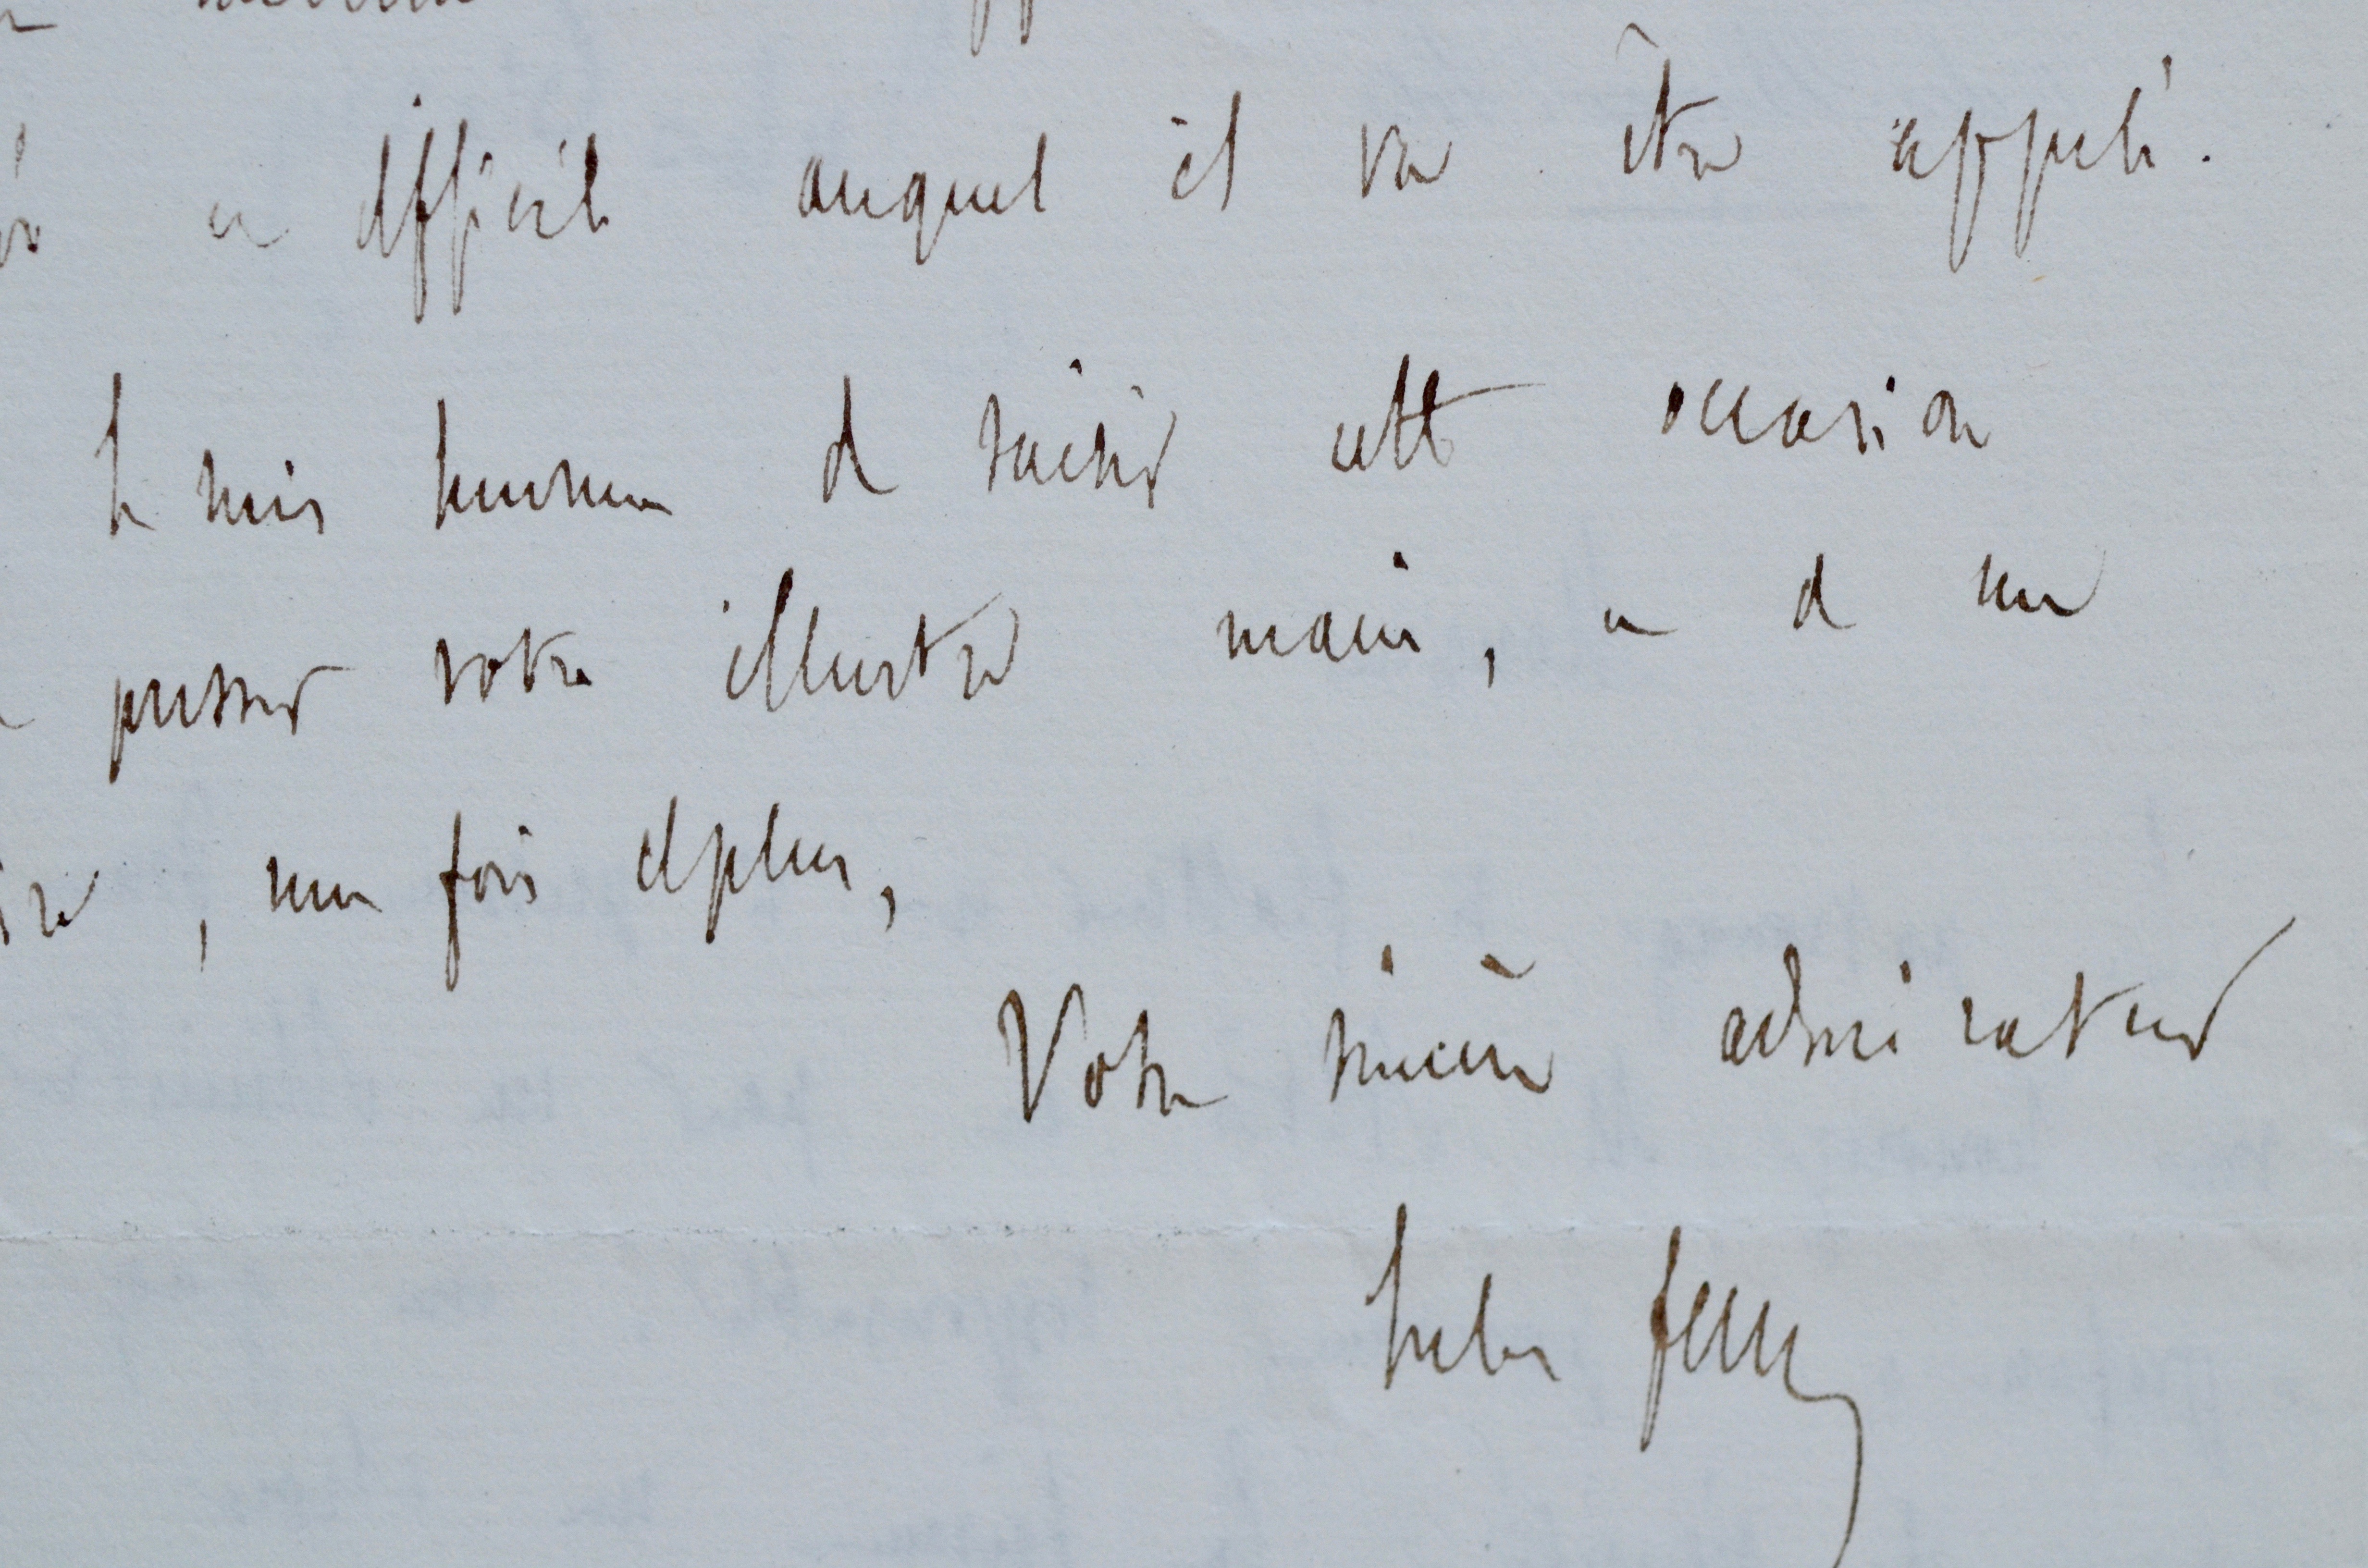 et difficile auquel il va être appelé.
Je suis heureux de saisir cette occasion
presser votre illustre main, et de me
, une fois de plus,
Votre sincère admirateur
Jules Ferry